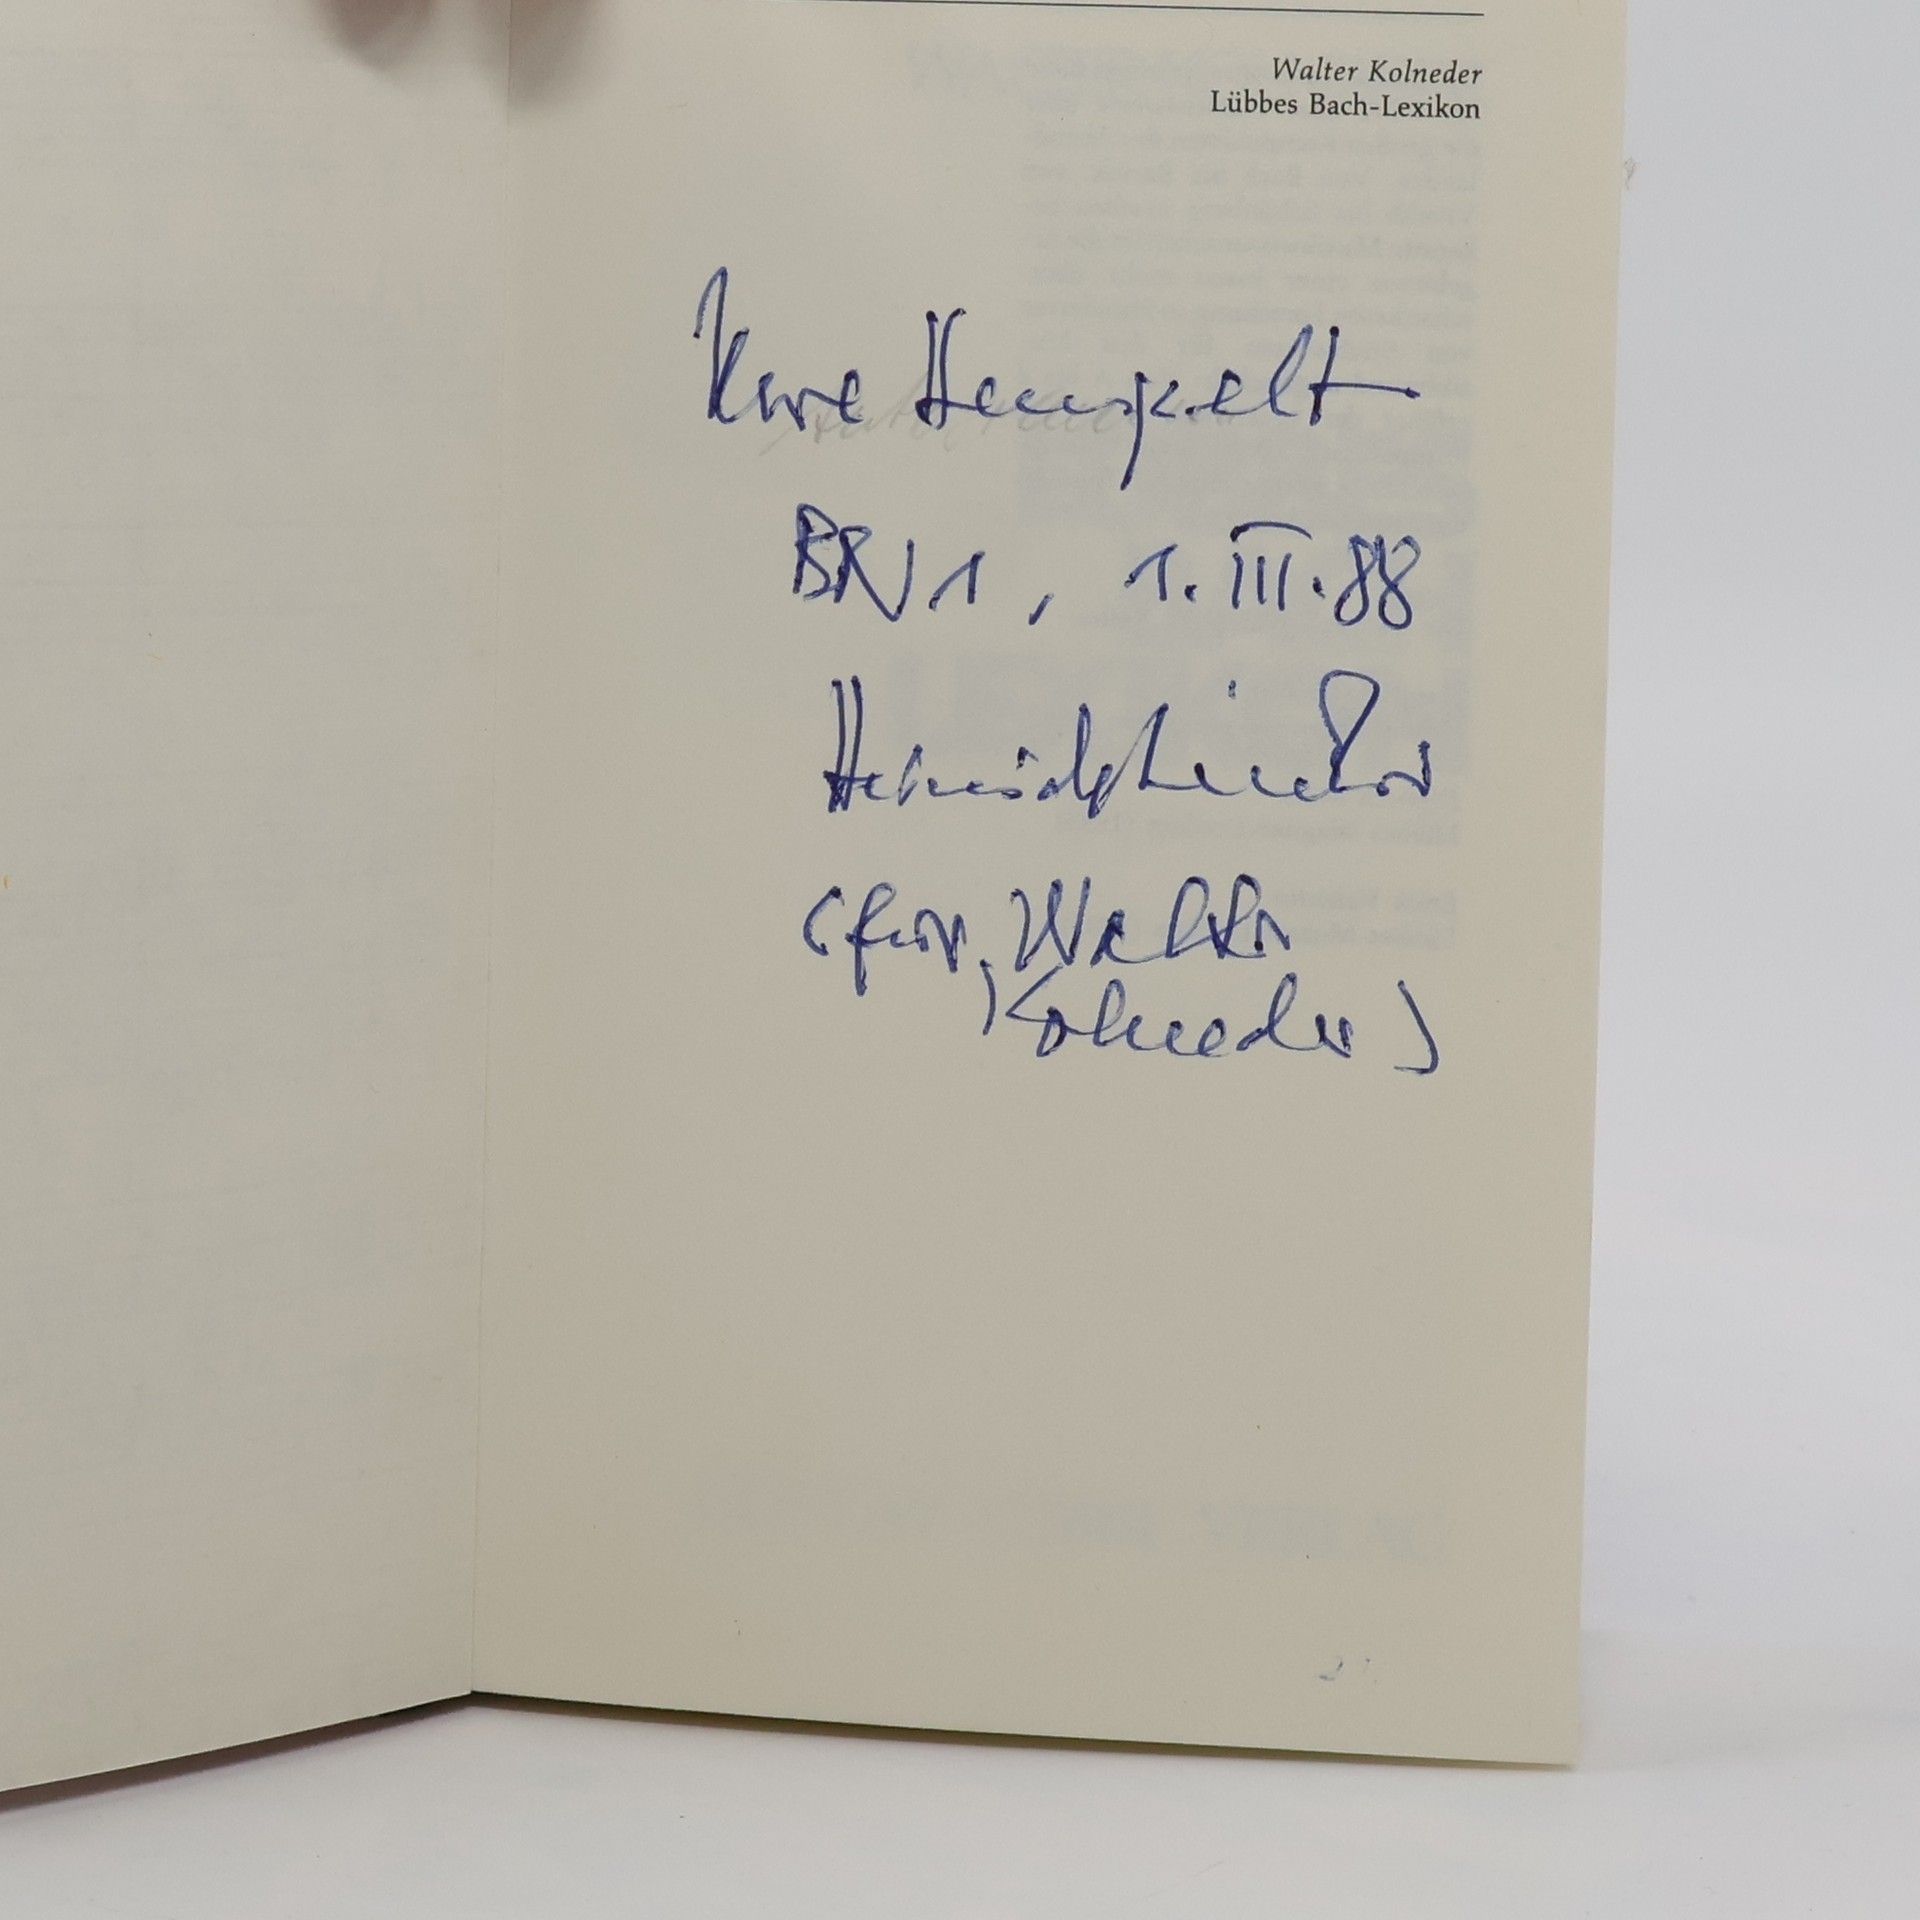 Walter Kolneder
Lübbes Bach-Lexikon
Uwe Hempelt
BN 1, 1. III. 88
Heinrich
(für Walter
Kolneder)